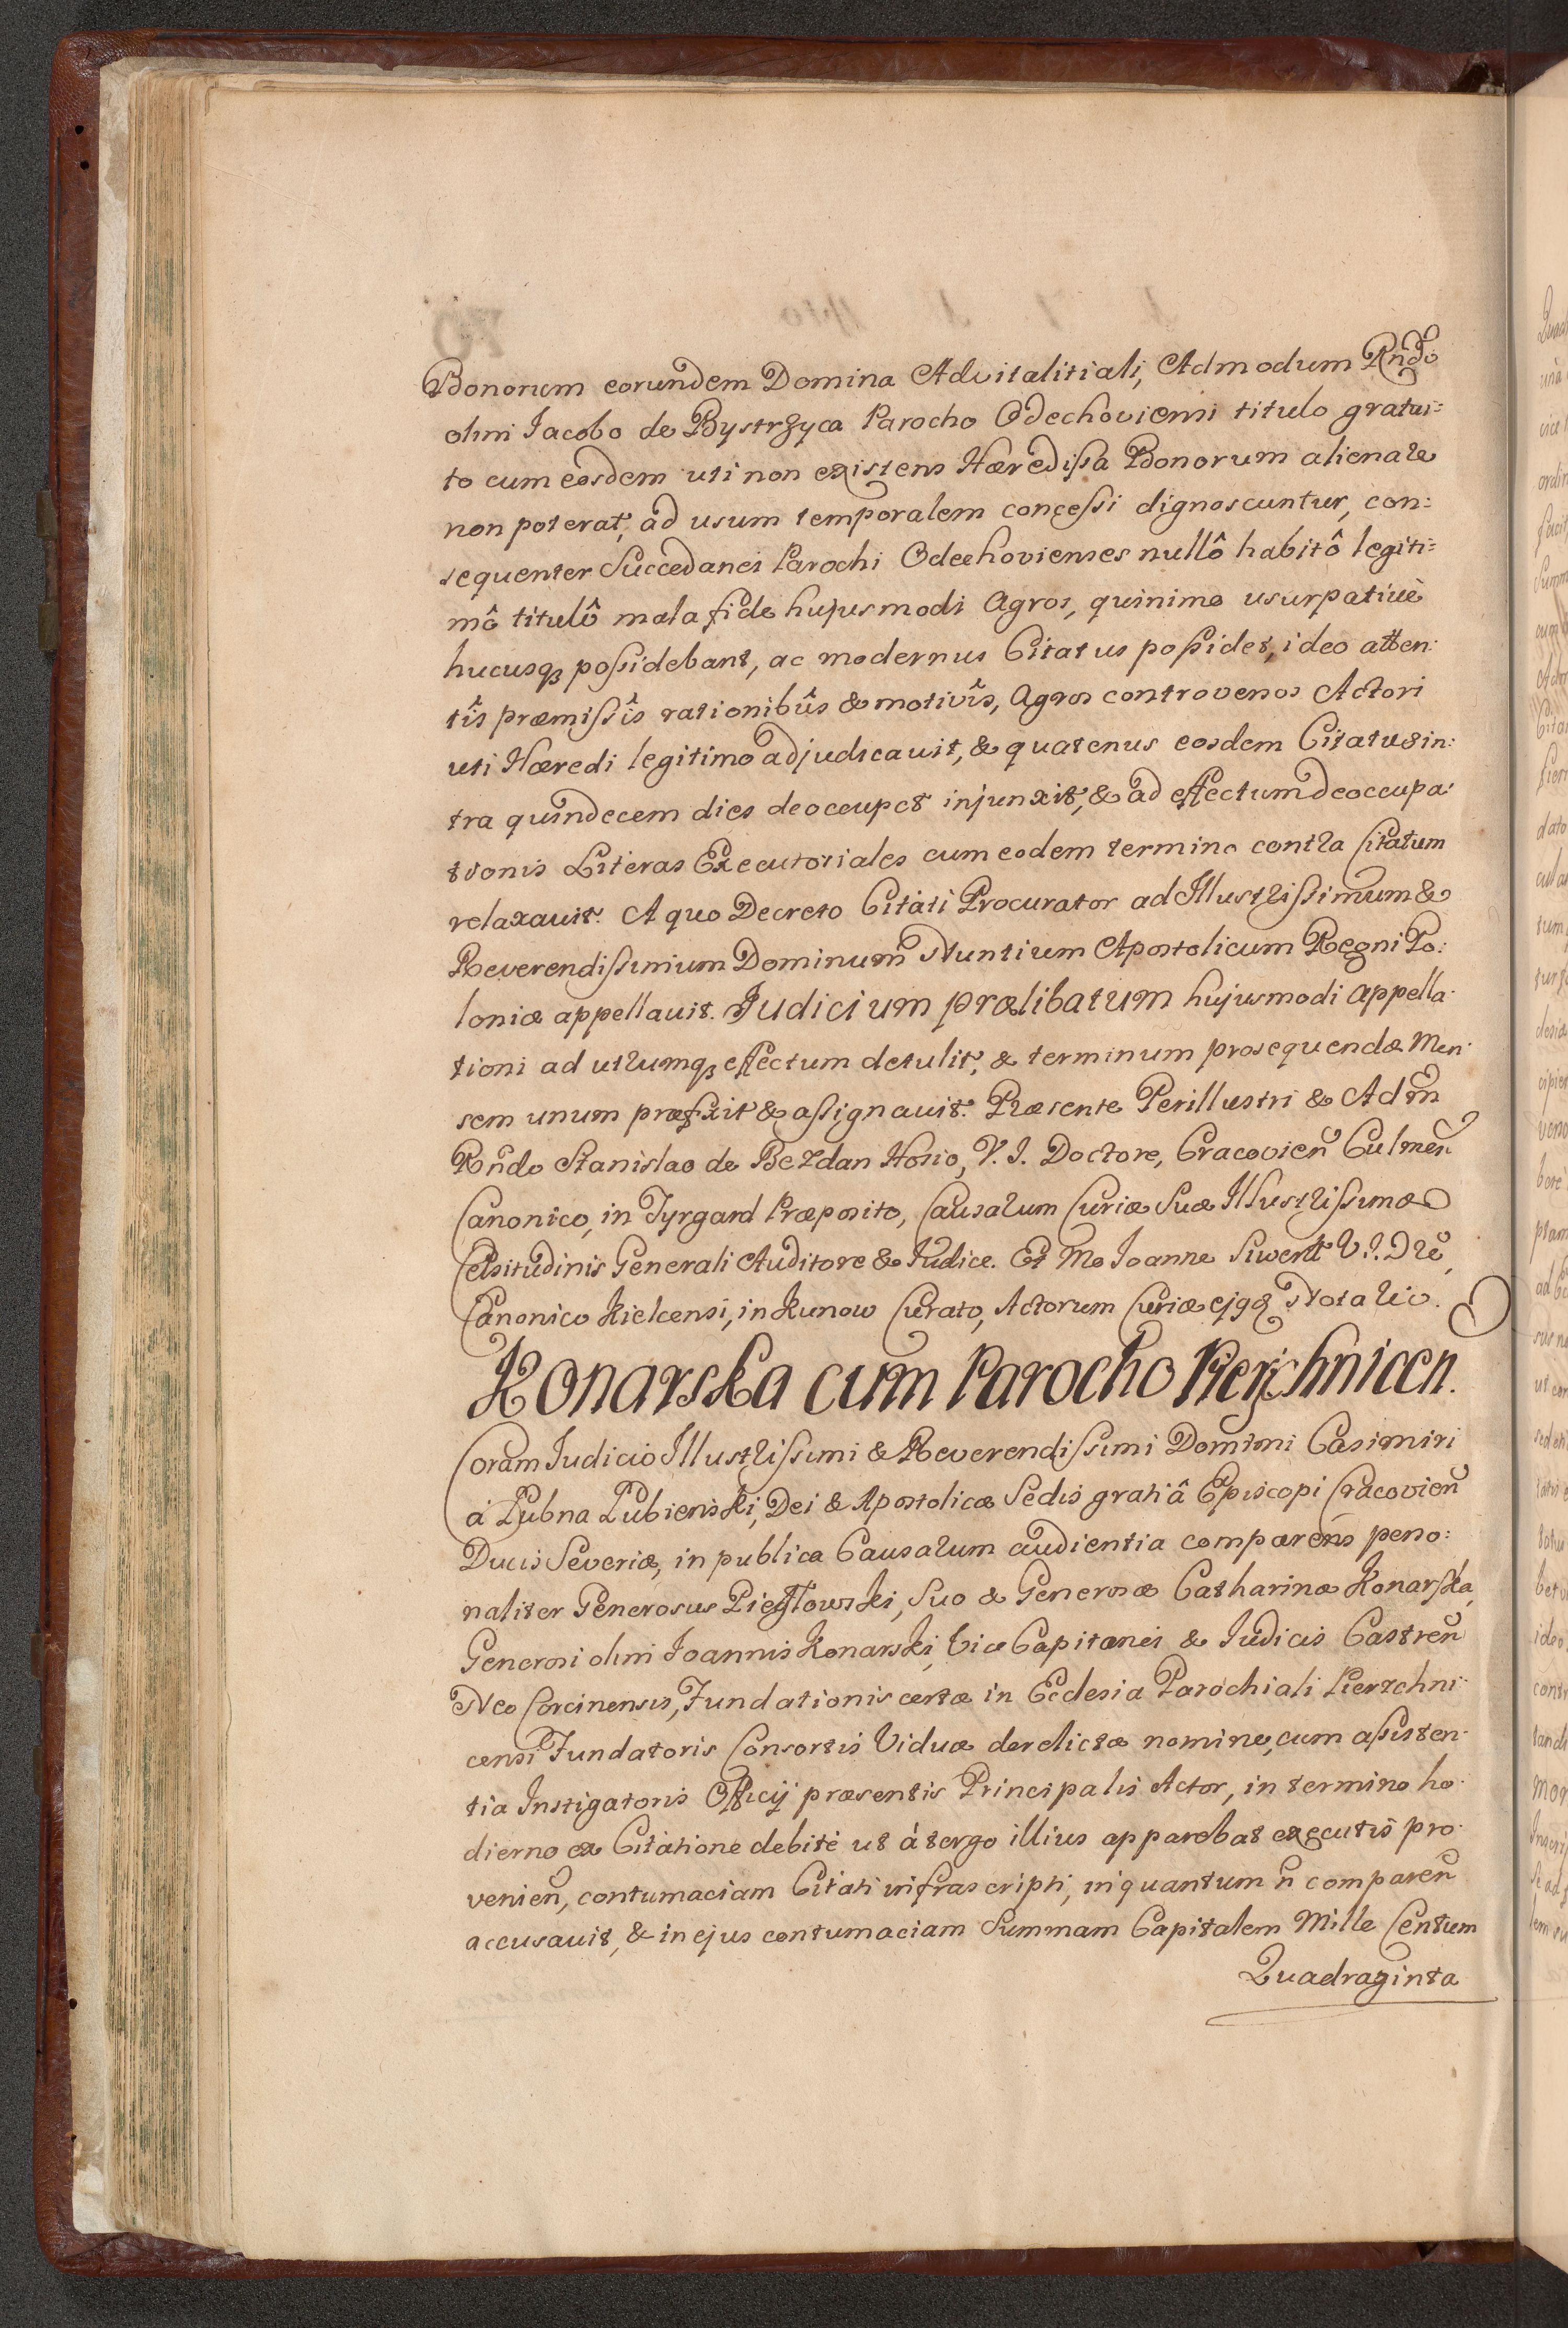 Bonorum eorundem Domina Advitalitiali, Admodum Rndo
olim Iacobo de Bystrzyca Parocho Odechoviensi titulo gratui:
to cum eosdem uti non existens Hæredissa Bonorum alienare
non poterat, ad usum temporalem concessi dignoscuntur, con:
sequenter Succedanei Parochi Odechovienses nullô habitô legiti:
mô titulô mala fide hujusmodi Agros, quinimo usurpativè
hucusq possidebant, ac modernus Citatus possidet, ideo atten:
tîs præmissîs rationibûs & motivîs, Agros controversos Actori
uti Hæredi legitimo adjudicavit, & quatenus eosdem Citatus in:
tra quindecem dies deoccupet injunxit, & ad effectum deoccupa:
tionis Literas Executoriales cum eodem termino contra Citatum
relaxavit. A quo Decreto Citati Procurator ad Illustrissimum &
Reverendissimum Dominum Nuntium Apostolicum Regni Po:
loniæ appellavit. Judicium prælibatum hujusmodi appella:
tioni ad utrumq effectum detulit, & terminum prosequendæ Men:
sem unum præfixit & assignavit. Præsente Perillustri & Adm
Rndo Stanislao de Bezdan Hosio, V. I. Doctore, Cracovien Culmen
Canonico, in Tyrgard Præposito, Causarum Curiæ Suæ Illustrissimæ
Celsitudinis Generali Auditore & Iudice. Et Me Ioanne Siwert V. I. Dre,
Canonico Kielcensi, in Kunow Curato, Actorum Curiæ ejqz Notario.
Konarska cum Parocho Pierzchnicen.
Coram Iudicio Illustrissimi & Reverendissimi Domini Casimiri
à Lubna Lubienski, Dei & Apostolicæ Sedis gratiâ Episcopi Cracovien
Ducis Severiæ, in publica Causarum audientia comparens perso:
naliter Generosus Piegłowski, Suo & Generosæ Catharinæ Konarska,
Generosi olim Ioannis Konarski, Vice Capitanei & Iudicis Castren
Neo Corcinensis, Fundationis certæ in Ecclesia Parochiali Pierzchni:
censi Fundatoris Consortis Viduæ derelictæ nomine, cum assisten:
tia Instigatoris Officij præsentis Principalis Actor, in termino ho:
dierno ex Citatione debitè ut à tergo illius apparebat executis pro:
venien, contumaciam Citati infrascripti, inquantum n comparen
accusavit, & in ejus contumaciam Summam Capitalem Mille Centum
Quadraginta